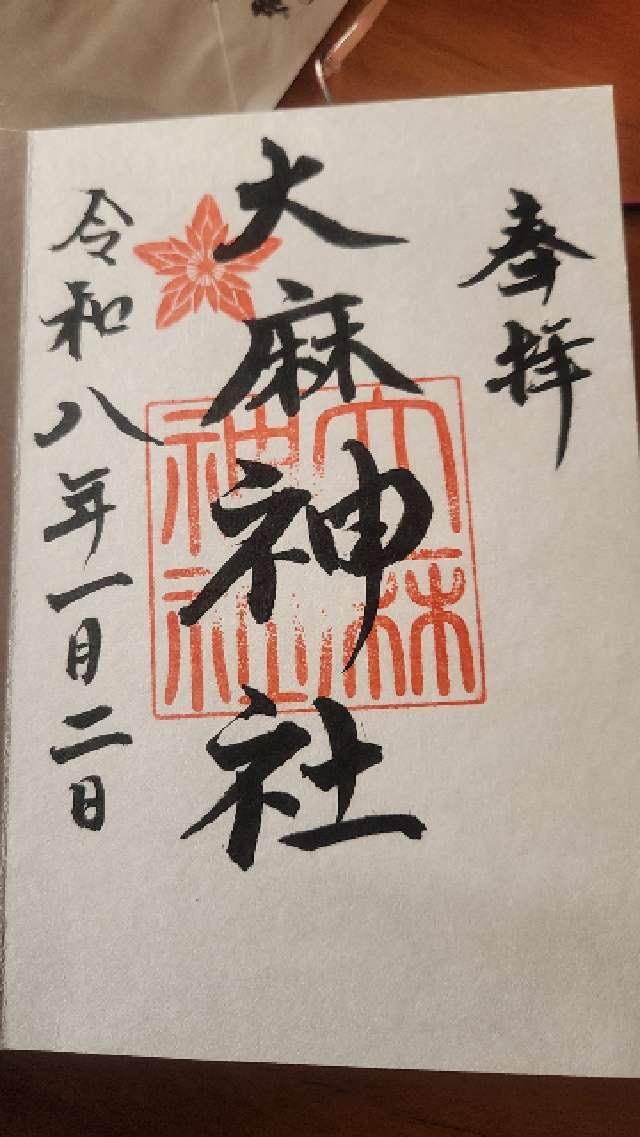 奉拝
大麻神社
大麻神社
令和八年一月二日